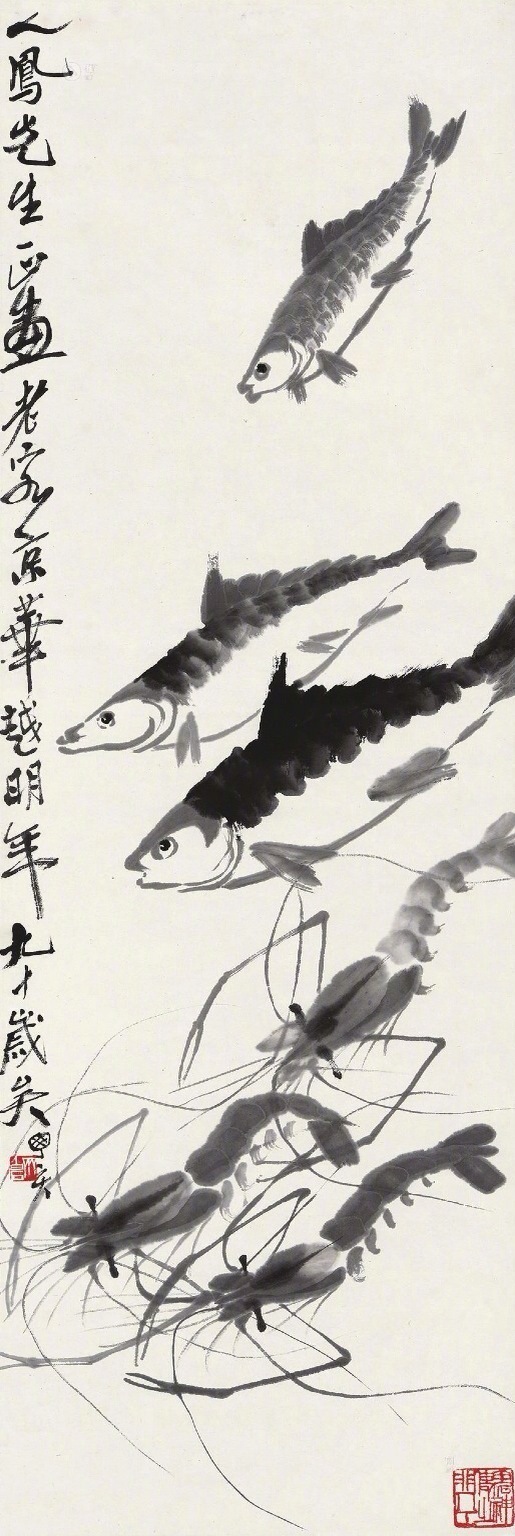 人鳳先生正畫老客京華越明年九十歲矣
白石